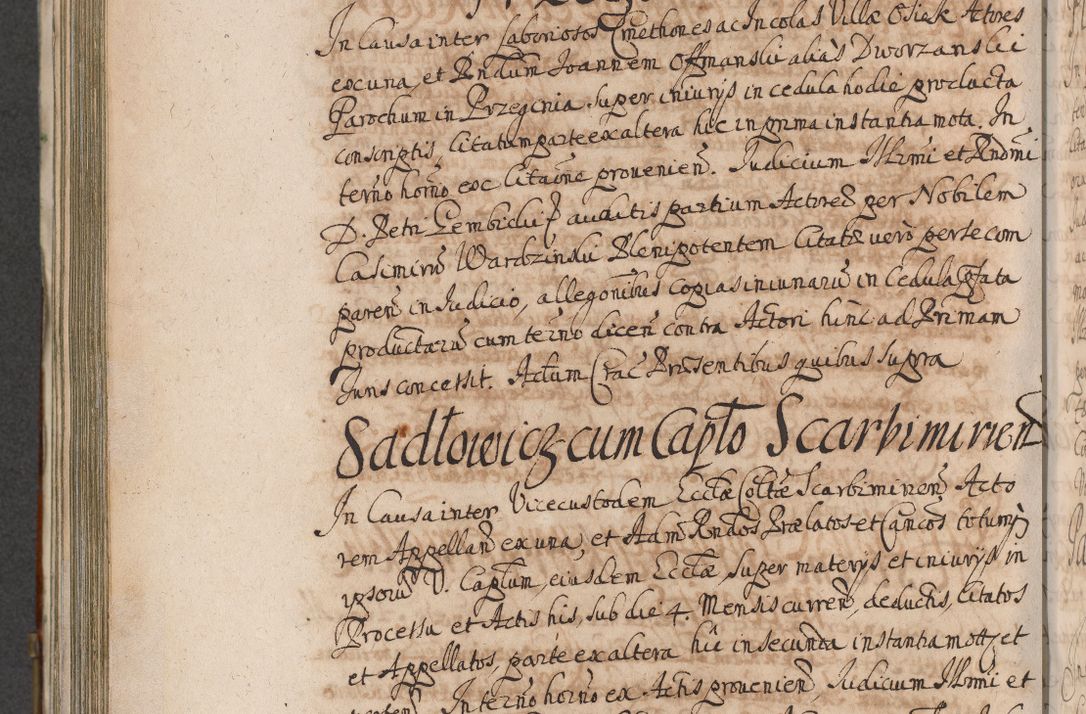 In Causa inter Laboriosos Cmethones ac Incolas Villæ Osiek Actores
ex una, et Rndum Joannem Offmanski alias Dworzanski
Parochum in Przeginia super iniurijs in cedula hodie producta
conscriptis, Citatum parte ex altera hic in prima instantia mota. In
termo horno ex Citaone prouenien. Iudicium Illrmi et Rndmi
D. Petri Gembicki auditis partium Actoreæ per Nobilem
Casimirum Wardzinski Plenipotentem Citatæ vero per se com
paren in Iudicio, allegonibus copias iniuriarum in Cedula pfata
productarum cum termo dicen contra Actori hinc ad Primam
Iuris concessit. Actum Crac Præsentibus quibus supra
Sadłowicz cum Capło Scarbimirien
In Causa inter Vicecustodem Ecclæ Collæ Scarbimirien Acto
rem Appellan ex una, et Adm Rndos Prælatos et Cancos totumq
ipsorum V. Caplum, eiusdem Ecclæ, super materijs et iniurijs in
Processu et Actis his, sub die 4. Mensis curren, deductis, Citatos
et Appellatos, parte ex altera hic in secunda instantia mott, et
In termo horno ex Actis prouenien, Iudicium Illrmi et